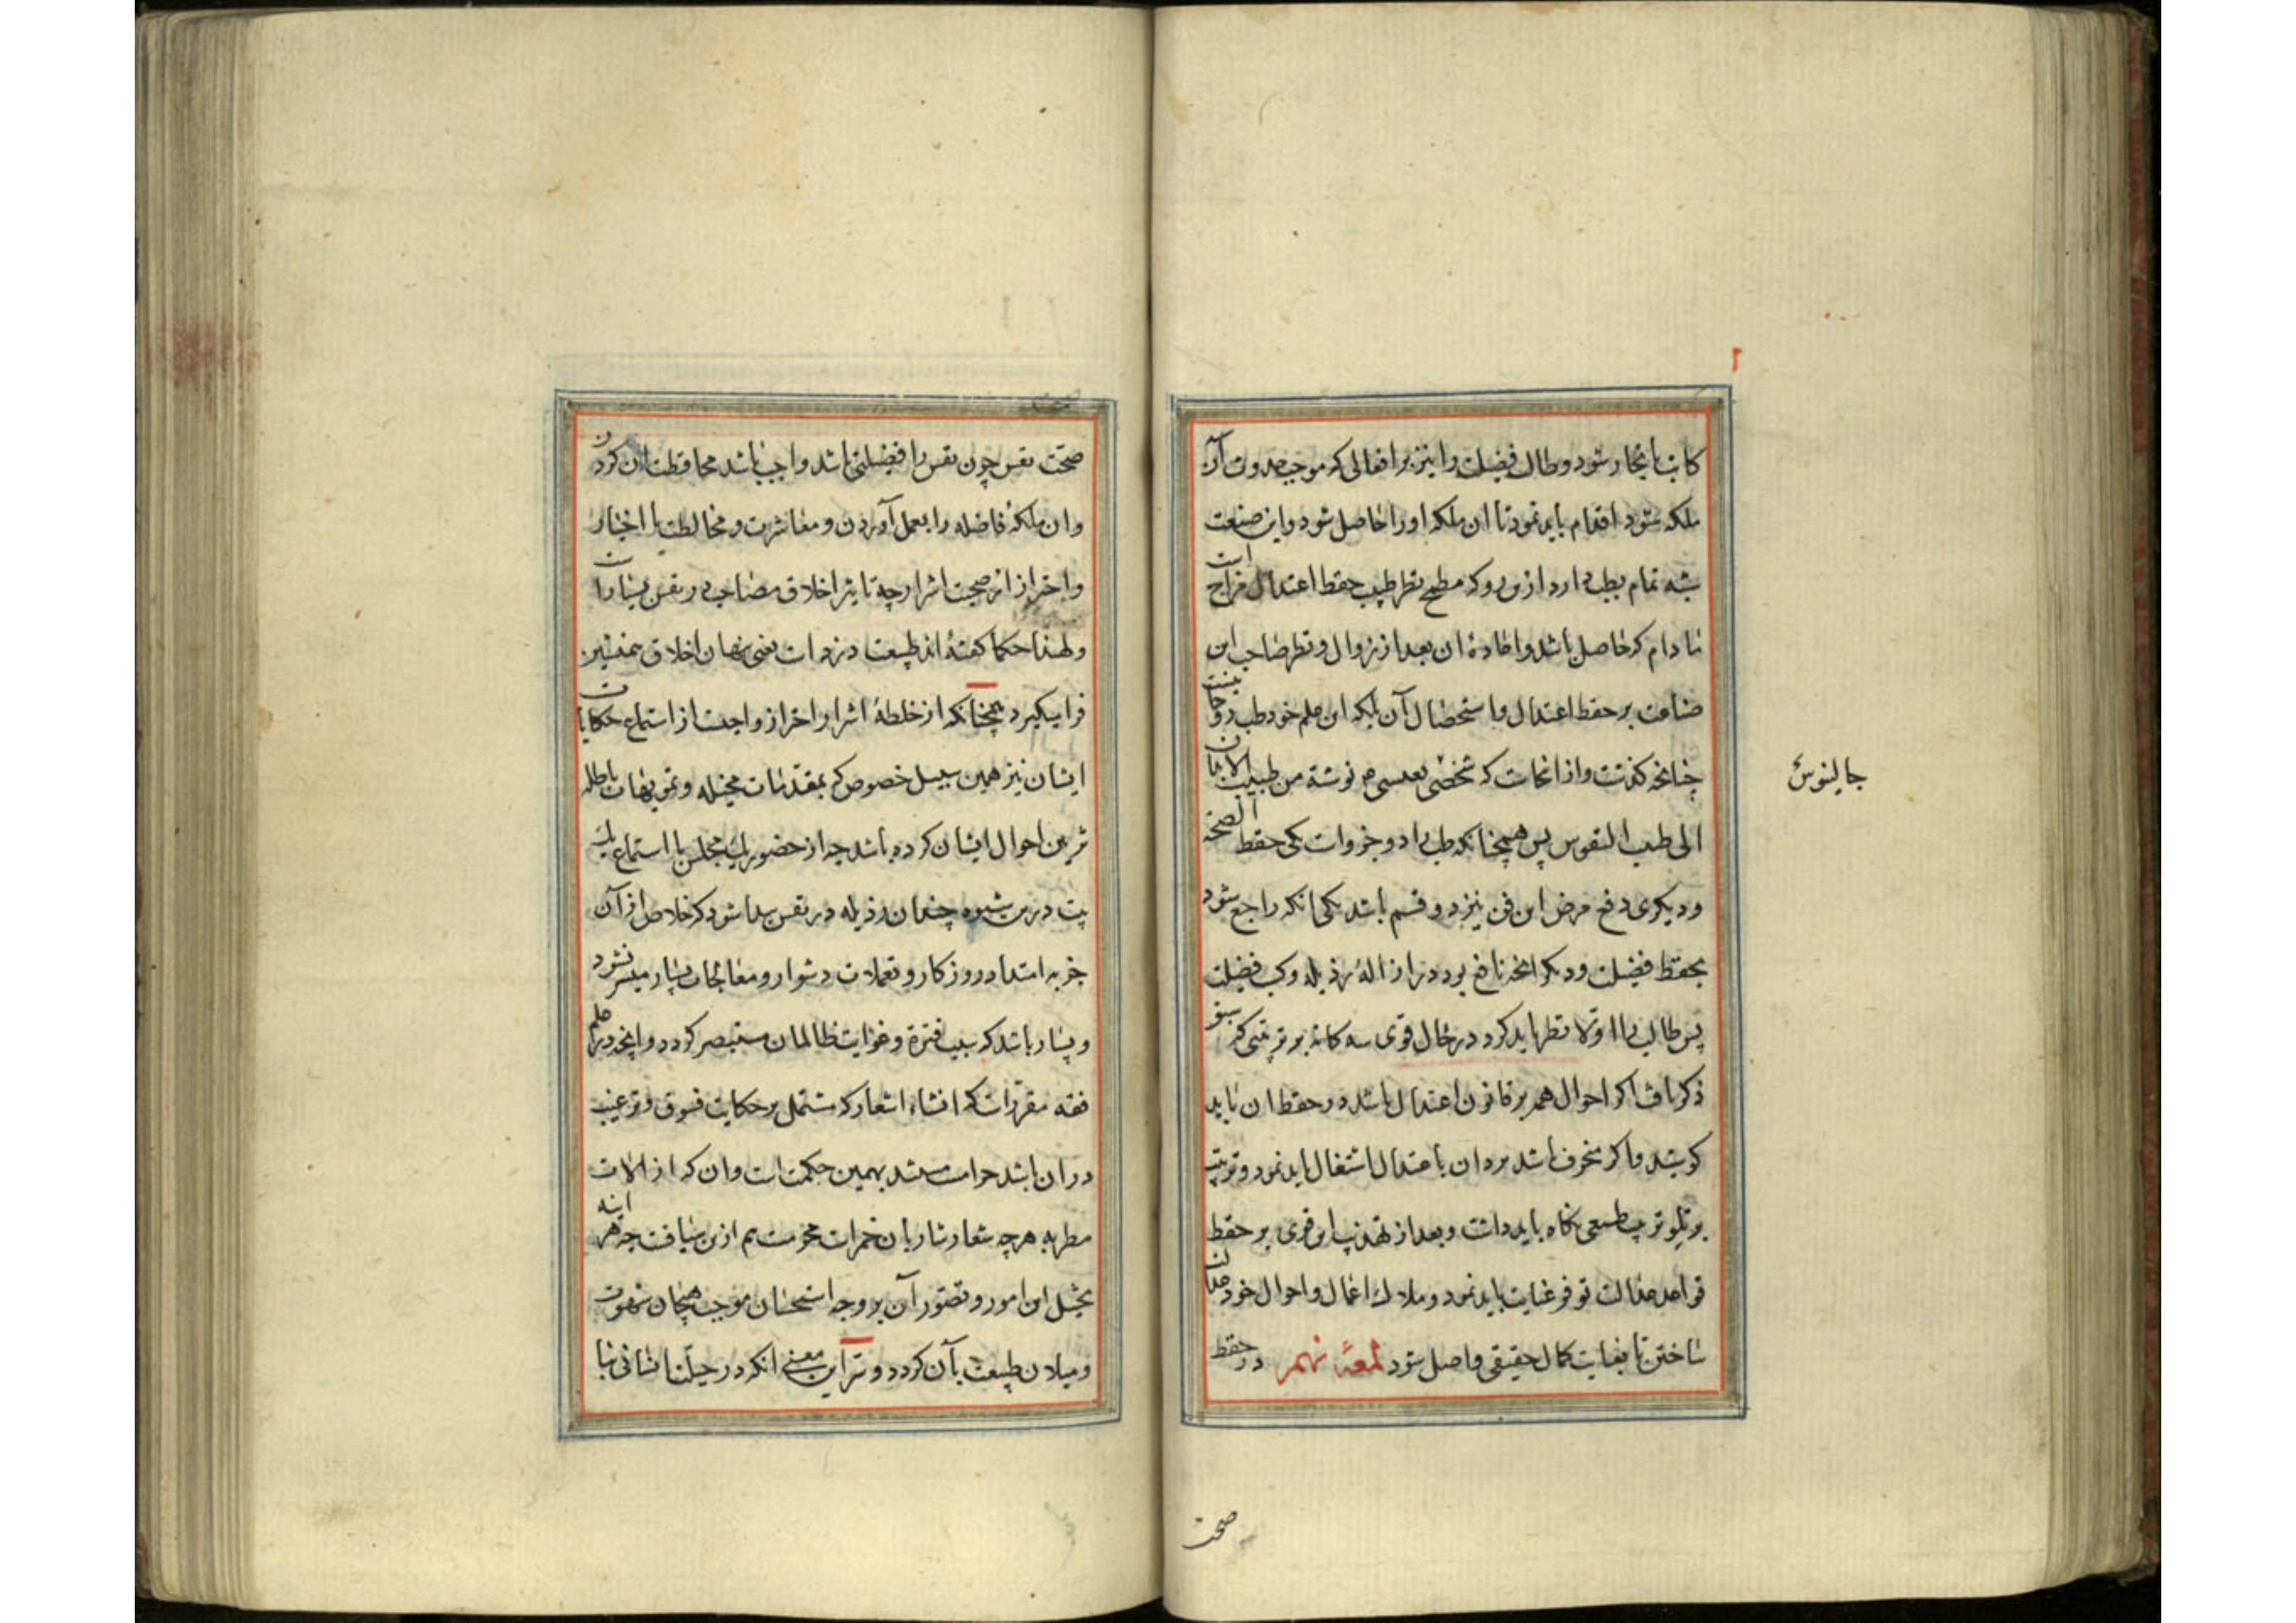 کاتب یا نجار شود و طالب فضیلت را نیز بر افعالی که موجب حدوث آن
ملکه شود اقدام باید نمود تا ان ملکه او را حاصل شود و این صنعت
شبه تمام بطب دارد ازین رو که مطمح نظر طبیب حفظ اعتدال مزاج است
مادام که حاصل باشد و اعاده ان بعد از زوال و نظر صاحب این
صناعت بر حفظ اعتدال و استحصال آن بلکه این علم خود طب روحانیست
چنانچه گذشت و از انجاست که شخصی بعیسی م نوشته من طبیب الابدان
الی طبیب النفوس پس همچنانکه طب را دو جزو است یکی حفظ الصحة
و دیکری دفع مرض این فن نیز دو قسم باشد یکی انکه راجع شود
بحفظ فضیلت و دیکر انچه نافع بود در ازالهٔ رذیله و کسب فضیلت
پس طالب را اولا نظر باید کرد در حال قوی سه کانه بر ترتیبی که سبق
ذکر یافت اکر احوال همه بر قانون اعتدال باشد در حفظ ان باید
کوشید و اکر منحرف باشد برد ان با عتدال اشتغال باید نمود و ترتیب
بر تلو ترتیب طبیعی نکاه باید داشت و بعد از تهذیب این قوی بر حفظ
قواعد عدالت توفر عنایت باید نمود و ملاک اعمال و احوال خود عدالت
ساختن تا بغایت کمال حقیقی واصل شود لمعهٔ نهم در حفظ
جالینوس
صحت
صحّت نفس چون نفس را فضیلتی باشد واجب باشد محافظت ان کردن
و ان ملکهٔ فاضله را بعمل آوردن و معاشرت و مخالطت با اخیار
و احتراز از صحبت اشرار چه تاثیر اخلاق مصاحب در نفس بسیار است
و لهذا حکما کفته‌اند طبیعت دزد است یعنی پنهان اخلاق همنشین
فرا میکیرد همچنانکه از خلطهٔ اشرار احتراز واجبست از استماع حکایات
ایشان نیز همین سبیل خصوص که بمقدمات مخیله و تمویهات باطله
تزیین احوال ایشان کرده باشد چه از حضور یک مجلس یا استماع یک
بیت درین شیوه چندان رذیله در نفس پیدا شود که خلاص از آن
جز به امتداد روزکار و تعملات دشوار و معالجات بسیار میسر نشود
و بسیار باشد که سبب فترة و غوایت ظالمان مستبصر کردد و انچه در علم
فقه مقرر است که انشاء اشعار که مشتمل بر حکایت فسوق و ترغیب
در ان باشد حرامست مستند بهمین حکمت است و ان که از الات
مطربه هرچه شعار شاربان خمر است محرمست هم ازین سیاقت چه هر اینه
تخیل این امور و تصور آن بر وجه استحسان موجب هیجان شهوت
و میلان طبیعت بآن کردد و سرّ این معنی انکه در جبلّت انسانی بنا